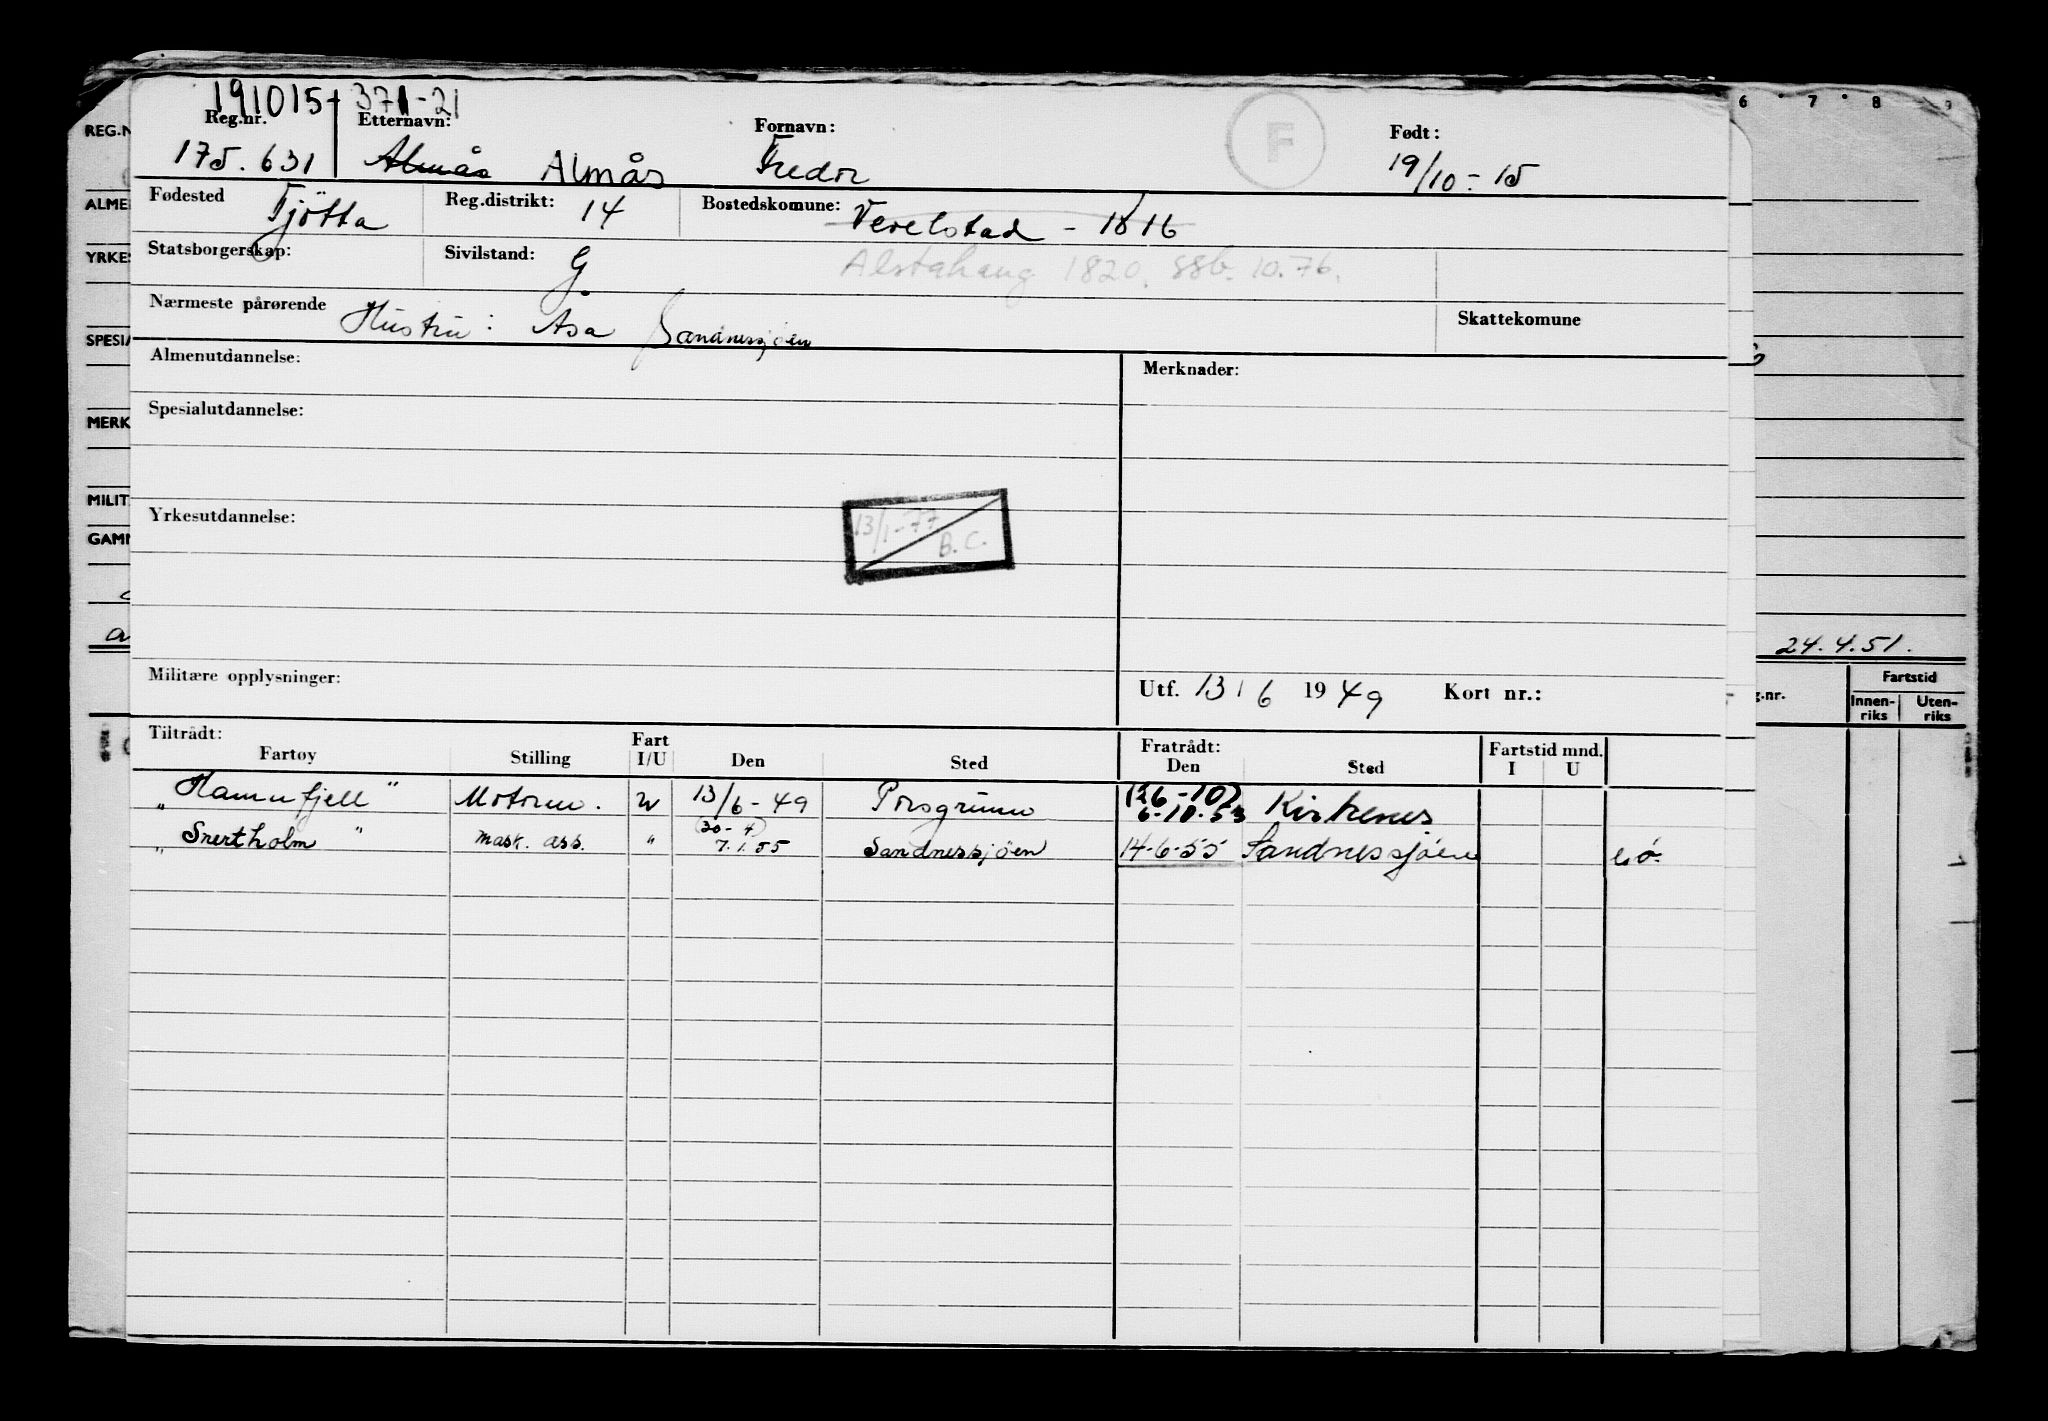 191015 371-21
Reg.nr. Etternavn: Fornavn: F Født:
175.631 Almås Almås Fredr 19/10-15
Fødested Tjötta Reg.distrikt: 14 Bostedskomune: Vevelstad - 1816
Statsborgerskap: Sivilstand: G. Alstahaug 1820. ssb. 10.76.
Nærmeste pårørende Hustru: Asa Sandnessjøen Skattekomune
Almenutdannelse: Merknader:
Spesialutdannelse:
Yrkesutdannelse: 13/1-77 B.C.
Militære opplysninger: Utf. 13/6 1949 Kort nr.:
Tiltrådt: Fratrådt:
Fartøy Stilling Fart I/U Den Sted Den Sted Fartstid mnd. I U
"Hamnfjell" Motorm. 13/6-49 Porsgrunn (26-10) 6.10.53 Kirkenes
"Svertholm" mask. ass. " (30-4) 7.1.55 Sandnessjöen 14-6-55 Sandnessjöen
REG.N
ALME
YRKES
SPESIA
MERK
MILIT
GAMM
6 7 8 9
24.4.51.
g.nr. Fartstid
Innen-riks Uten-riks